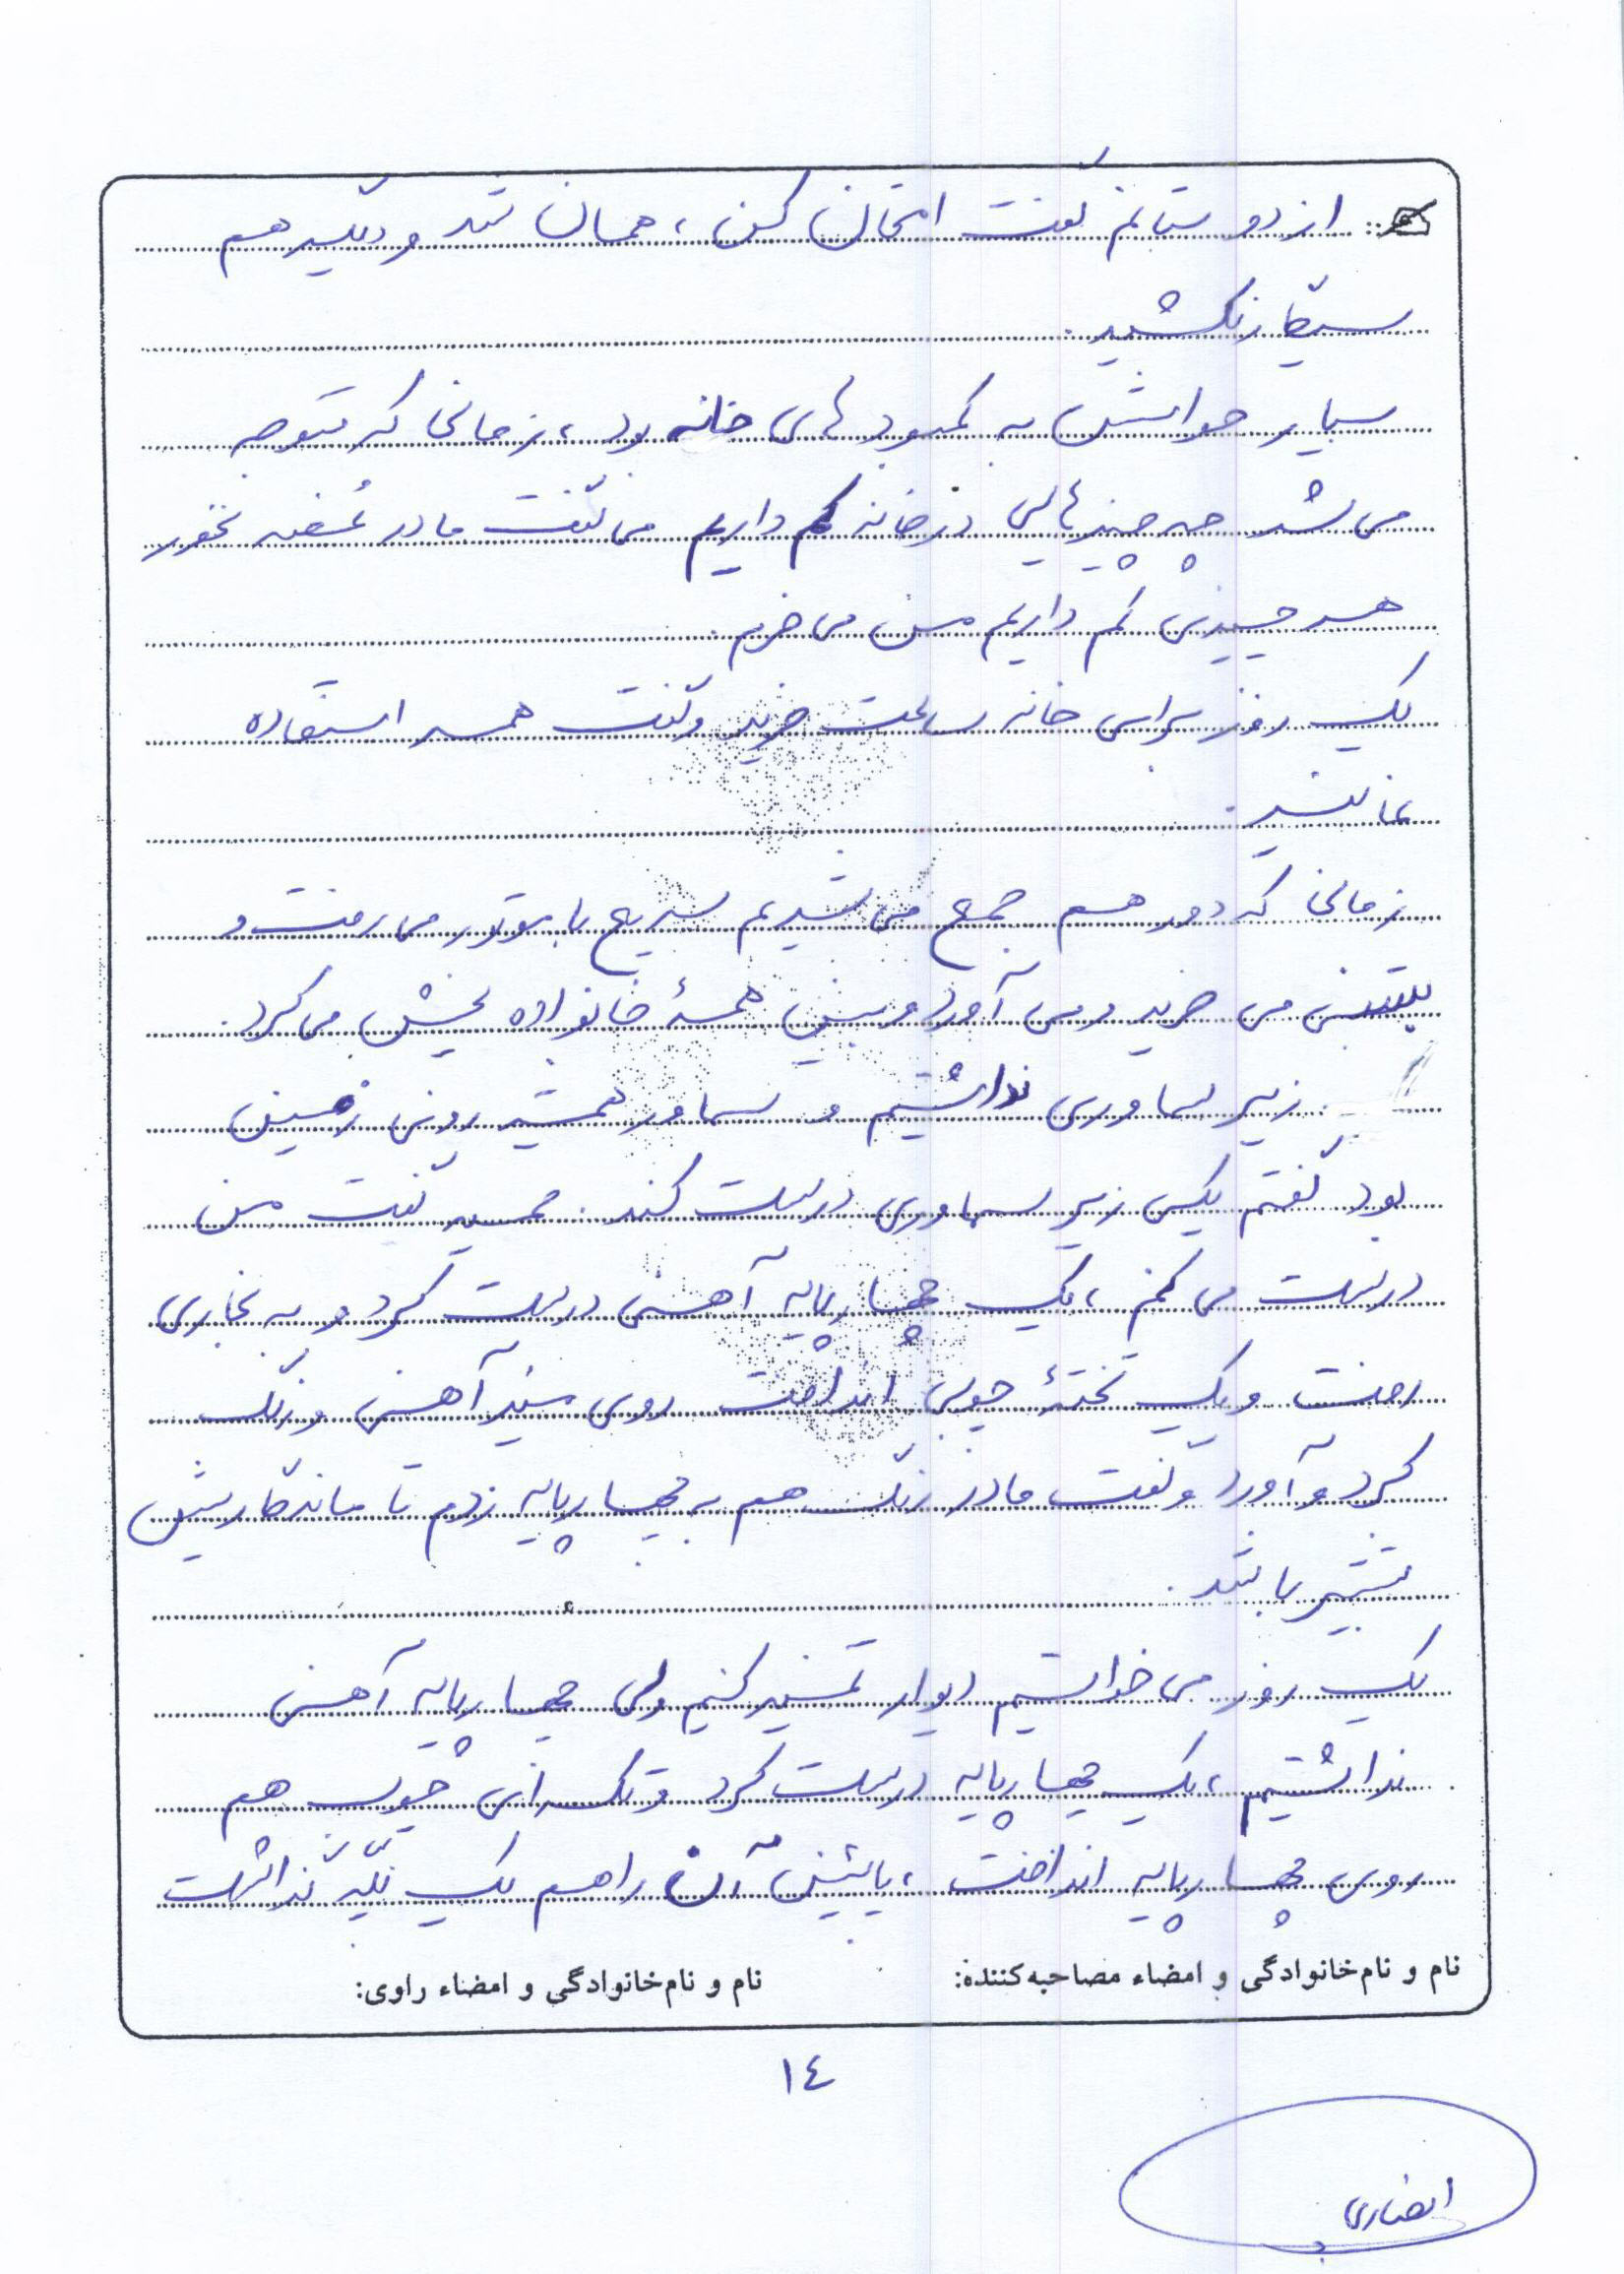 از دوستانم گفت امتحان کن، همان شد و دیگر هم
سیگار نکشید.
بسیار حواسش به کمبودهای خانه بود، زمانی که متوجه
می شد چه چیزهایی در خانه کم داریم می گفت مادر غصه نخور
هر چیزی کم داریم من می خرم.
یک روز برای خانه ساعت خرید و گفت همه استفاده
نمائید.
زمانی که دور هم جمع می شدیم سریع با موتور می رفت و
بستنی می خرید و می آورد و بین همهٔ خانواده پخش می کرد.
زیر سماوری نداشتیم و سماور همیشه روی زمین
بود گفتم یکی زیر سماوری درست کند. حمید گفت من
درست می کنم، یک چهارپایه آهنی درست کرد و به نجاری
رفت و یک تختهٔ چوبی انداخت روی میز آهنی و رنگ
کرد و آورد و گفت مادر رنگ هم به چهارپایه زدم تا ماندگاریش
بیشتر باشد.
یک روز می خواستیم دیوار تمیز کنیم ولی چهارپایه آهنی
نداشتیم، یک چهارپایه درست کرد و تک رای چوب هم
روی چهارپایه انداخت، پائین آن را هم یک پله گذاشت
نام و نام خانوادگی و امضاء مصاحبه کننده:
نام و نام خانوادگی و امضاء راوی:
١٤
انصاری